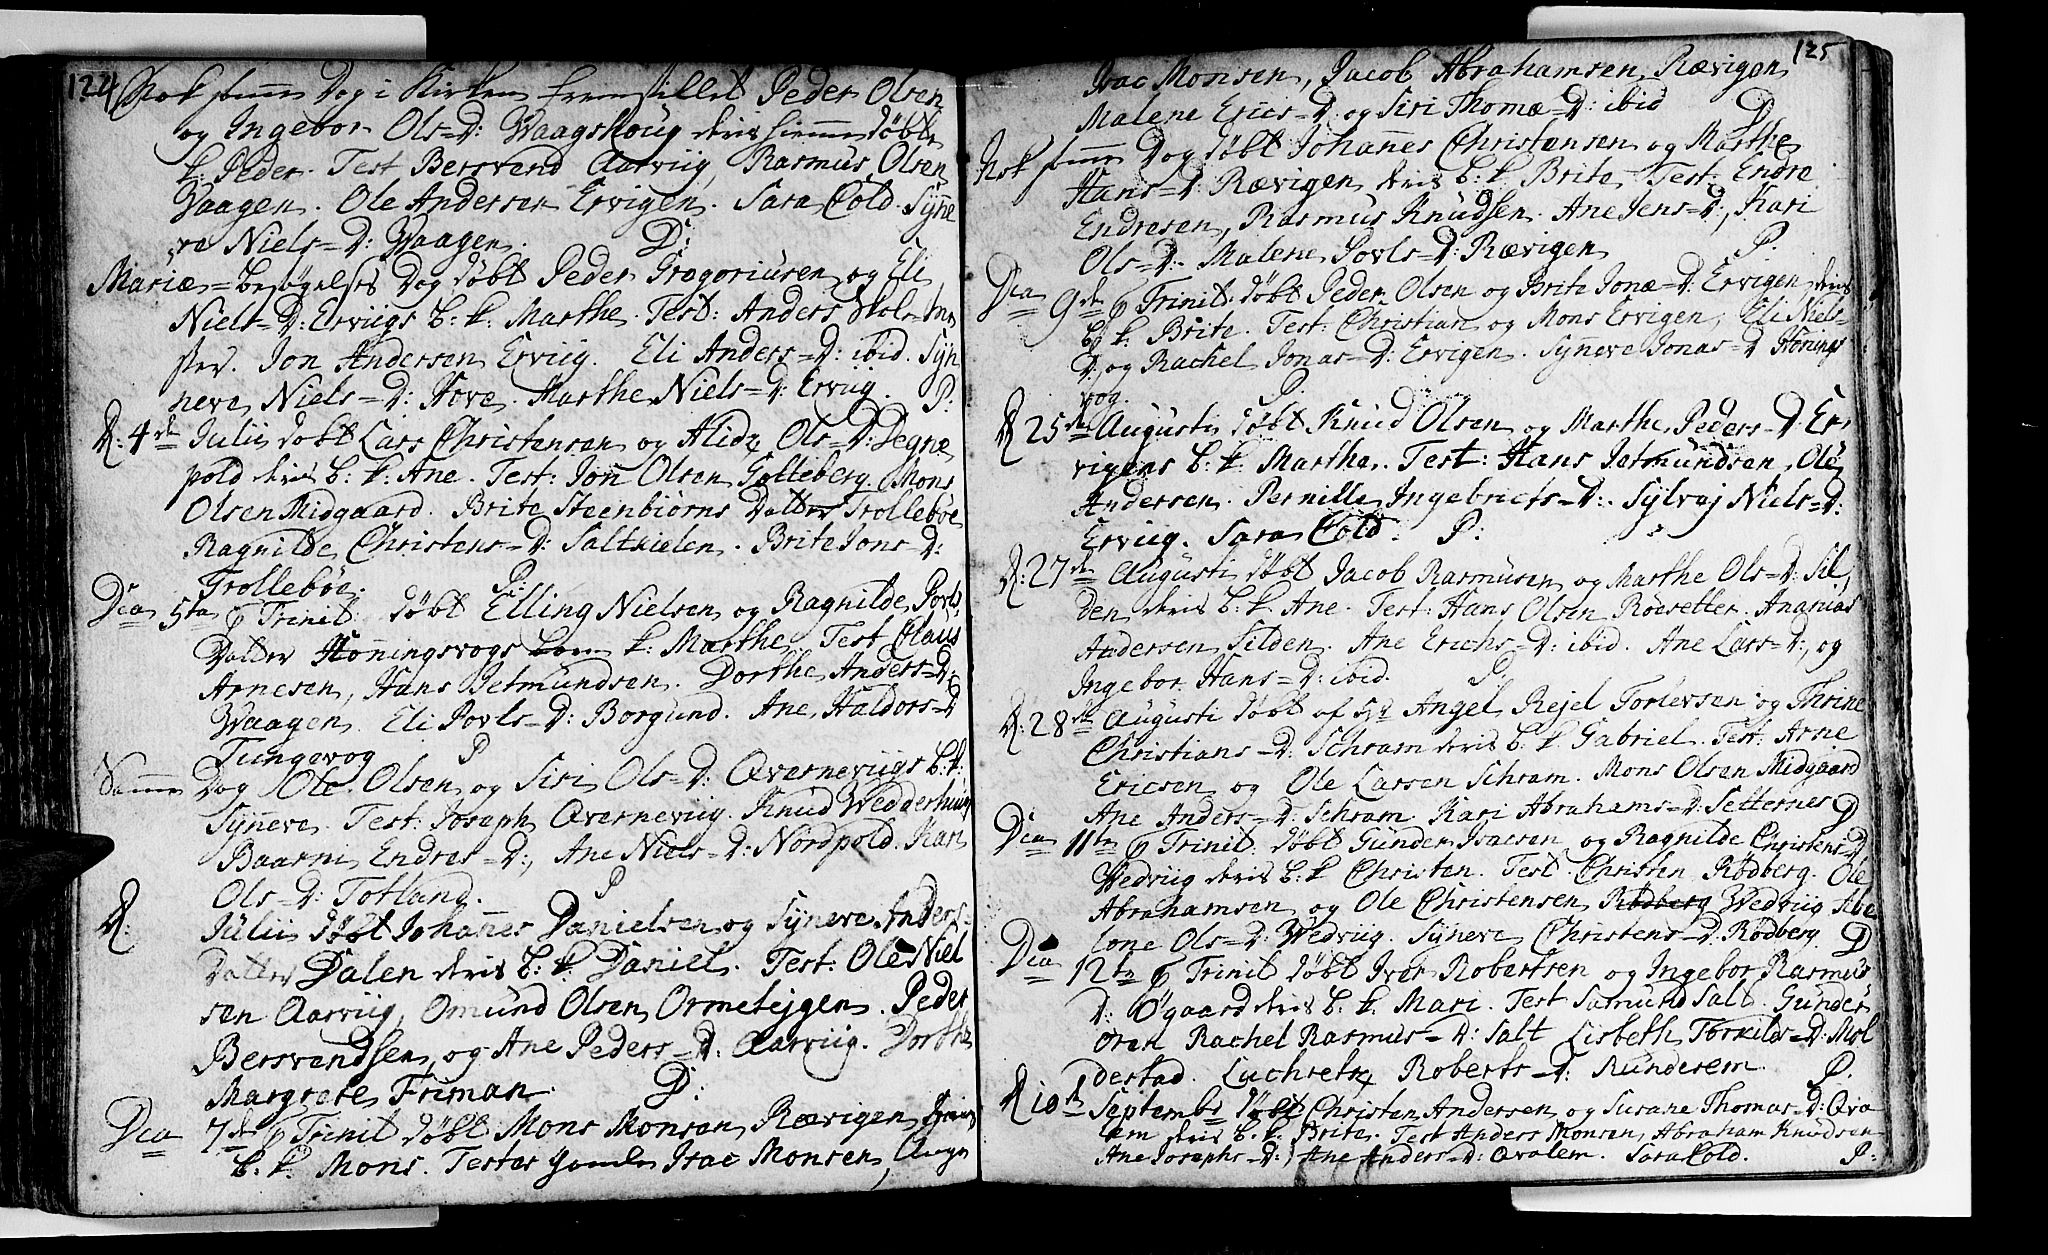 124
Nok samme Dag i Kirken fremstillet Peder Olsen
og Ingebor Ols=D: Waagskoug deris hiemmedøbte
b: Peder. Test Bersvend Aarviig, Rasmus Olsen
Waagen. Ole Andersen Ervigen. Sara Cold. Syñe
ve Niels=D: Waagen. D:
Mariæ=besøgelses Dag døbt Peder Gregoriusen og Eli
Niels=D: Erviigs b: k. Marthe. Test: Anders Skole=me
ster. Jon Andersen Erviig. Eli Anders=D: ibid. Syn
neve Niels=D: Hove. Marthe Niels=D: Erviig. P:
D: 4de Julii døbt Lars Christensen og Alida Ols=D: Degne
pold deris b: k: Ane. Test: Jon Olsen Golteberg. Mons
Olsen Midgaard. Brite Steenbiørns Datter Trollebøe
Ragnilde Christens=D: Saltkielen. Brite Jons=D:
Trollebøe. P:
Dca 5ta p Trinit: døbt Elling Nielsen og Ragnilde Povls
Datter Honingsvogs barn k: Marthe. Test Claus
Arnesen, Hans Jetmundsen. Dorthe Anders=D:
Waagen. Eli Povls=D: Borgund. Ane Haldors=D
Tungevog P
Samme Dag Ole Olsen og Siri Ols=D: Qvernevigs b: k:
Syñeve. Test: Joseph Qvernevig. Knud Wedderhuus
Baarni Endres=D:, Ane Niels=D: Nordpold. Kari
Ols=D: Totland. P
D: Julii døbt Johañes Danielsen og Syneve Anders=
Datter Dalen deris b: k. Daniel. Test: Ole Niel
sen Aarviig, Omund Olsen Ormeleygen. Peder
Bersvendsen, og Ane Peders=D: Aarviig. Dorthe
Margrete Friman. D:
Dca 7de p Trinit døbt Mons Monsen Rævigen
b: k. Mons. Testes gamle Isac Monsen, Unge
125
Isac Monsen, Jacob Abrahamsen Rævigen
Malene Erics=D: og Siri Thomæ=D: ibid D
Nok samme Dag døbt Johañes Christensen og Marthe
Hans=D: Rævigen deris b: k Brite. Test: Endre
Endresen, Rasmus Knudsen. Ane Jens=D:, Kari
Ols=D: Malene Povls=D: Rævigen P.
Dca 9de p Trinit: døbt Peder Olsen og Brite Jonæ=D: Ervigen deris
b: k. Brite. Test: Christian og Mons Ervigen, Eli Niels=
D: og Rachel Jonas=D: Ervigen. Syñeve Jonas=D Honings
vog. P.
D 25de Augusti døbt Knud Olsen og Marthe Peders=D Er
vigens b: k. Marthe. Test: Hans Jetmundsen, Ole
Andersen. Pernille Ingebricts=D:. Sylvaj Niels=D:
Erviig. Sara Cold. P:
D: 27de Augusti døbt Jacob Rasmusen og Marthe Ols=D: Sil
den deris b: k. Ane. Test: Hans Olsen Røesetter. Ananias
Andersen Silden. Ane Erichs=D: ibid. Ane Lars=D:, og
Ingebor Hans=D: ibid. P.
D: 28de Augusti døbt af Hr Angel Rejel Torlevsen og Thrine
Christians=D: Schram deris b. k. Gabriel. Test: Arne
Ericsen og Ole Larsen Schram. Mons Olsen Midgaard
Ane Anders=D: Schram. Kari Abrahams=D: Setternes D
Dca 11te p Trinit: døbt Gunder Isacsen og Ragnilde Christens=D
Wedviig deris b: k Christen. Test. Christen Rødberg. Ole
Abrahamsen og Ole Christensen Rødberg Wedviig Sibe
lone Ols=D: Wedviig. Syneve Christens=D: Rødberg D
Dca 12te p Trinit døbt Iver Robertsen og Ingebor Rasmus
D: Øgaard deris b: k. Mari. Test Samund Salt. Gunder
Oren Rachel Rasmus=D: Salt Lisbeth Torkilds=D: Mol
destad. Luchretz Roberts=D: Runderem. P.
D 10de Septembr døbt Christen Andersen og Susane Thomas=D: Qva
lem deris b. k. Brite. Test Anders Monsen, Abraham Knudsen
Ane Josephs=D:, Ane Anders=D: Qvalem. Sara Cold. P: